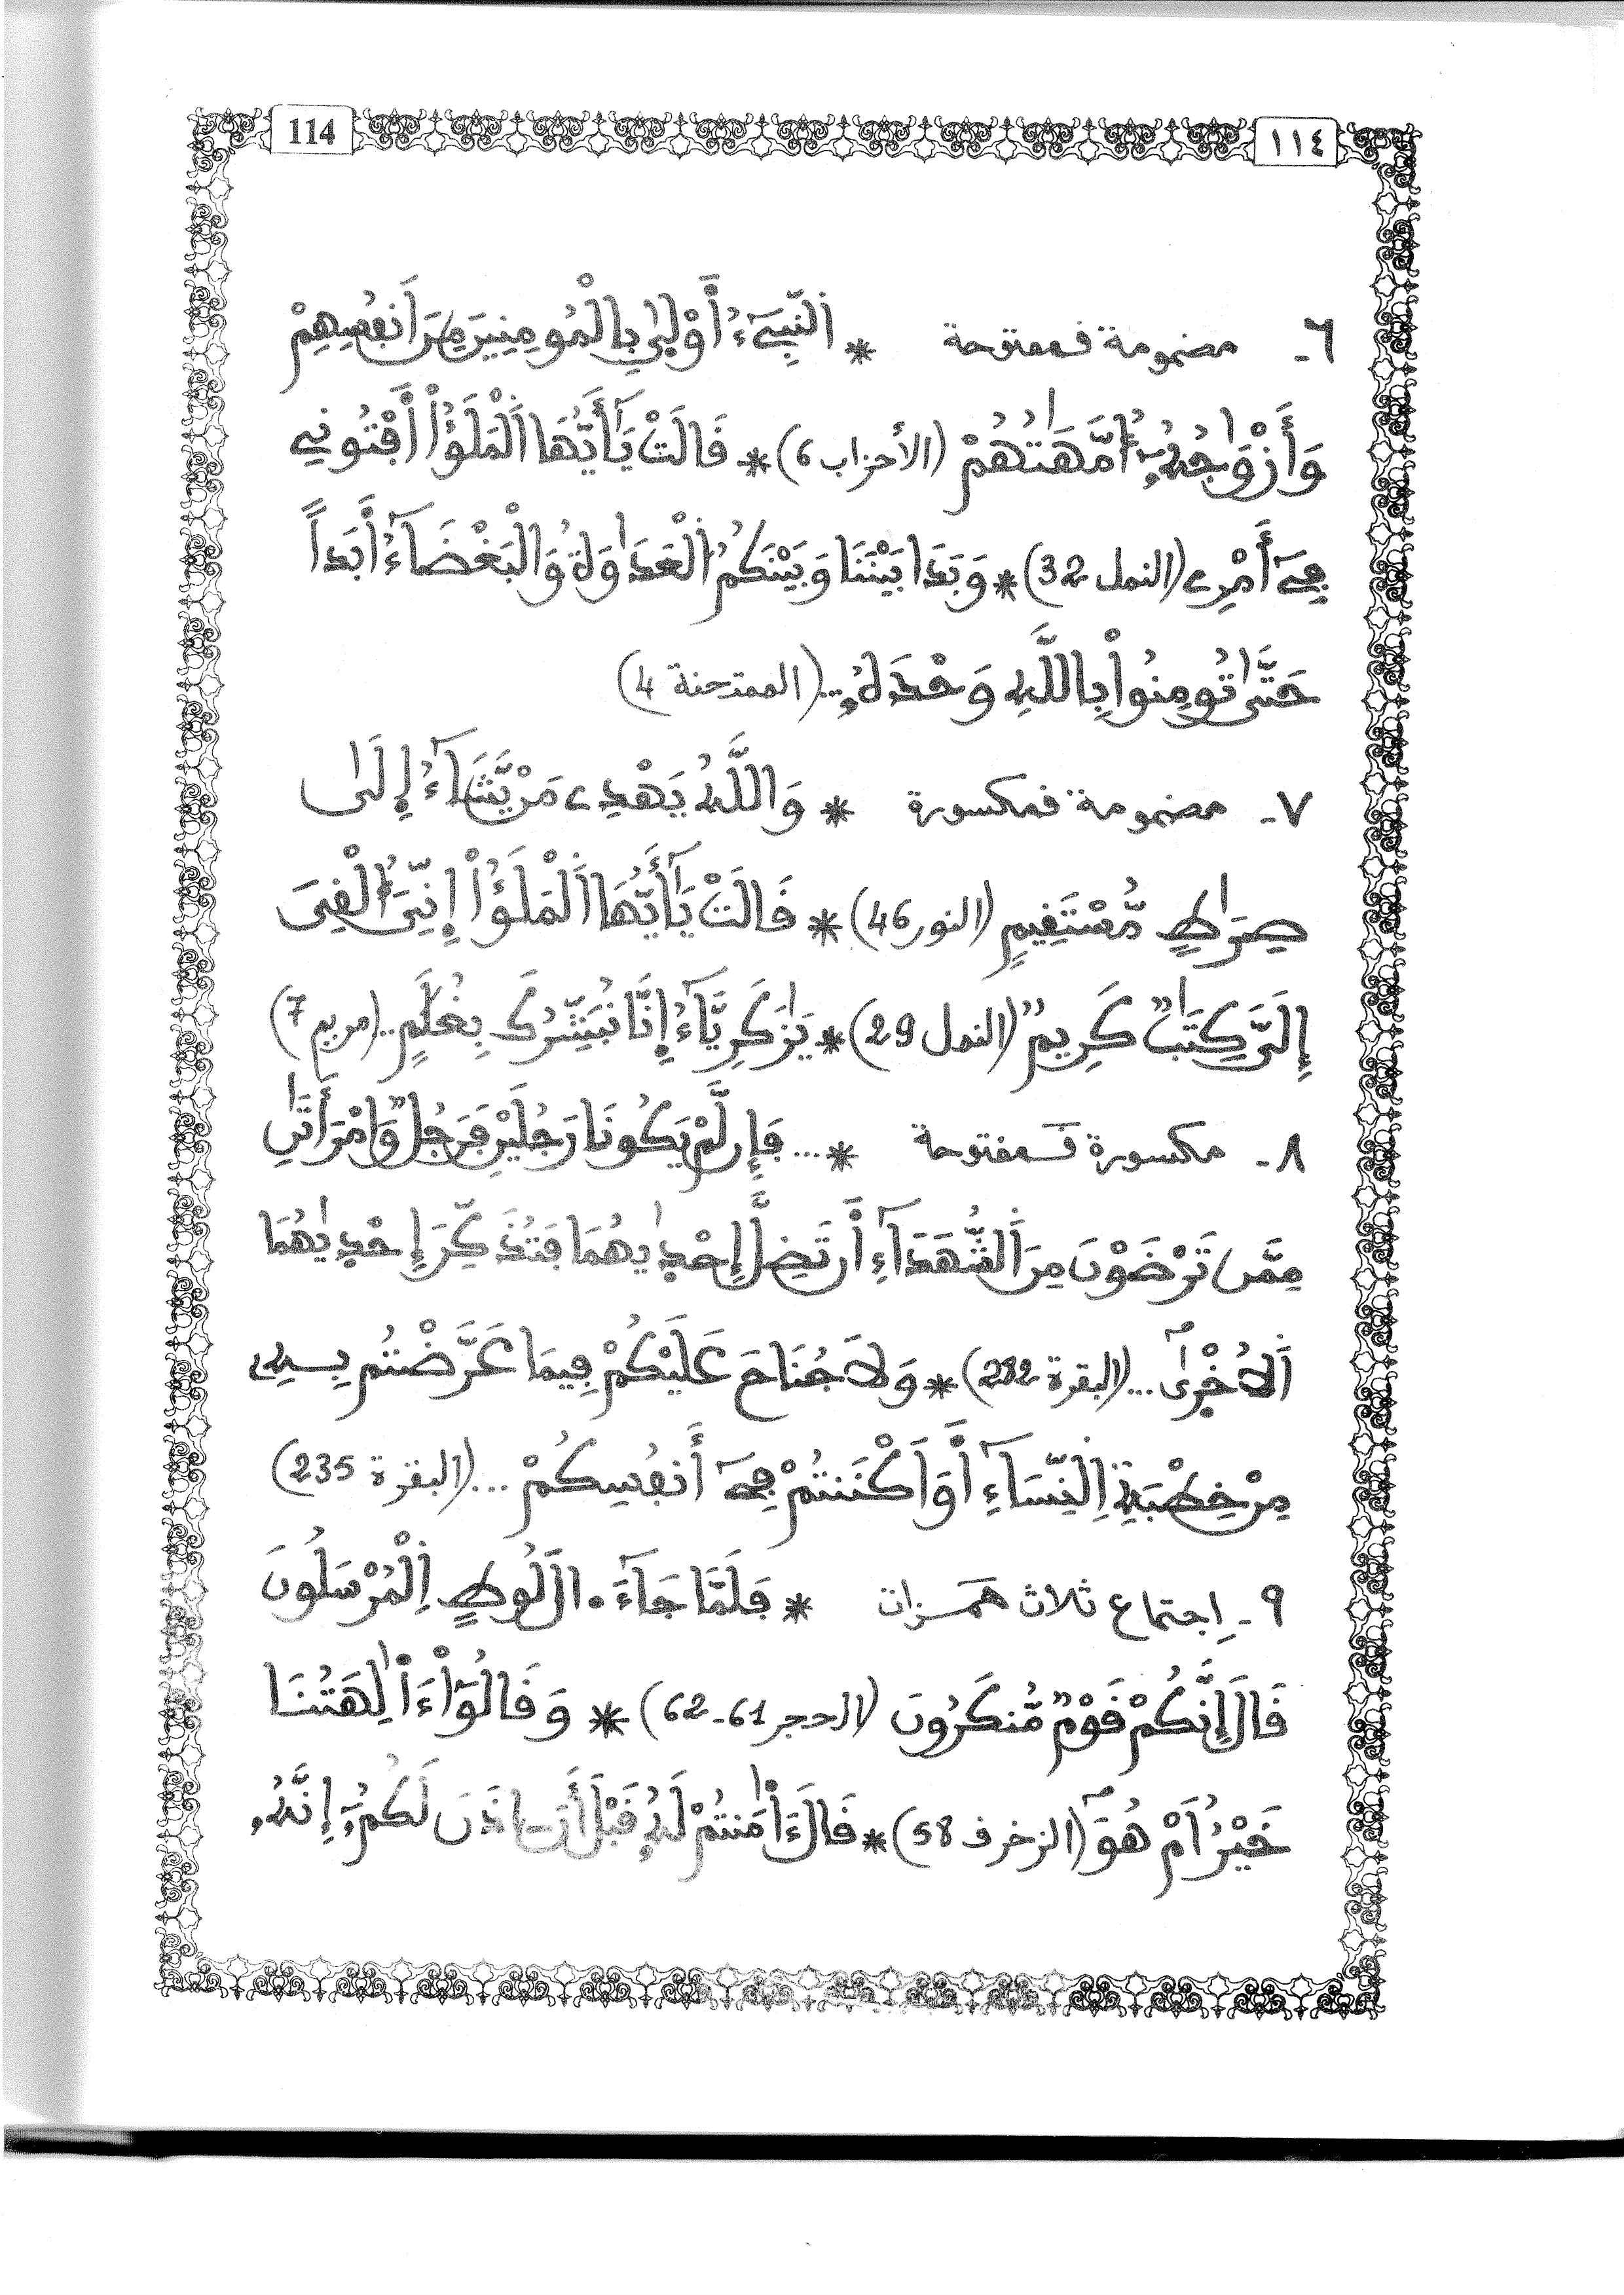 114
١١٤
٦- مضمومة فمفتوحة * اَلنَّبِيءُ أَوْلَىٰ بِالْمُومِنِينَ مِنَ اَنفُسِهِمْ
وَأَزْوَٰجُهُۥٓ أُمَّهَٰتُهُمْ (الأحزاب 6) * قَالَتْ يَٰٓأَيُّهَا اَلْمَلَؤُاْ اَفْتُونِے
فِےٓ أَمْرِے (النمل 32) * وَبَدَا بَيْنَنَا وَبَيْنَكُمُ اُلْعَدَٰوَةُ وَالْبَغْضَآءُ اَبَداً
حَتَّىٰ تُومِنُواْ بِاللَّهِ وَحْدَهُۥ... (الممتحنة 4)
٧- مضمومة فمكسورة * وَاللَّهُ يَهْدِے مَنْ يَّشَآءُ إِلَىٰ
صِرَٰطٍ مُّسْتَقِيمٍ (النور 46) * قَالَتْ يَٰٓأَيُّهَا اَلْمَلَؤُاْ إِنِّيَ أُلْقِيَ
إِلَيَّ كِتَٰبٌ كَرِيمٌ (النمل 29) * يَٰزَكَرِيَّآءُ إِنَّا نُبَشِّرُكَ بِغُلَٰمٍ... (مريم 7)
٨- مكسورة فمفتوحة * ... فَإِن لَّمْ يَكُونَا رَجُلَيْنِ فَرَجُلٌ وَامْرَأَتَٰنِ
مِمَّن تَرْضَوْنَ مِنَ اَلشُّهَدَآءِ اَن تَضِلَّ إِحْدٜىٰهُمَا فَتُذَكِّرَ إِحْدٜىٰهُمَا
اَلُاخْرٜىٰ... (البقرة 282) * وَلَا جُنَاحَ عَلَيْكُمْ فِيمَا عَرَّضْتُم بِهِۦ
مِنْ خِطْبَةِ اِلنِّسَآءِ اَوَ اَكْنَنتُمْ فِےٓ أَنفُسِكُمْ... (البقرة 235)
٩- اِجتماع ثلاث همزات * فَلَمَّا جَآءَ الَ لُوطٍ اِلْمُرْسَلُونَ
قَالَ إِنَّكُمْ قَوْمٌ مُّنكَرُونَ (الحجر 61-62) * وَقَالُوٓاْ ءَاٰلِهَتُنَا
خَيْرٌ اَمْ هُوَ (الزخرف 58) * قَالَ ءَاٰمَنتُمْ لَهُۥ قَبْلَ أَنَ اٰذَنَ لَكُمُۥٓ إِنَّهُۥ